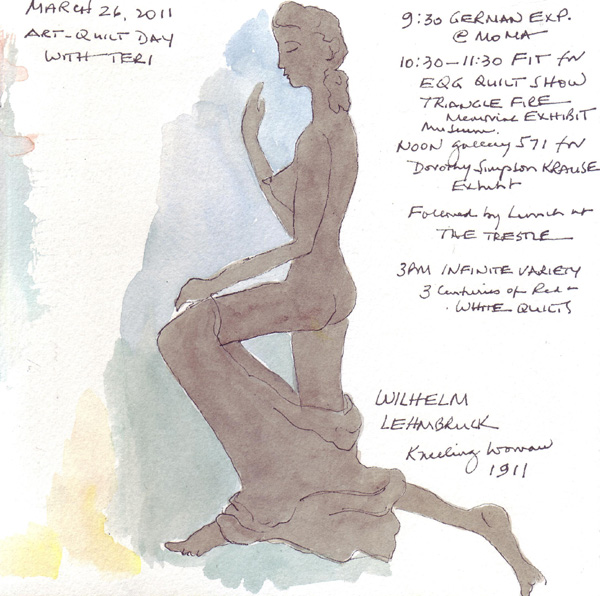 MARCH 26, 2011
ART-QUILT DAY
WITH TERI
9:30 GERMAN EXP.
@ MOMA
10:30-11:30 FIT for
EQG QUILT SHOW
TRIANGLE FIRE
Memorial EXHIBIT
Museum.
NOON gallery 571 for
Dorothy Simpson KRAUSE
Exhibit
Followed by Lunch at
THE TRESTLE
3PM INFINITE VARIETY
3 Centuries of Red &
WHITE QUILTS
WILHELM
LEHMBRUCK
Kneeling Woman
1911